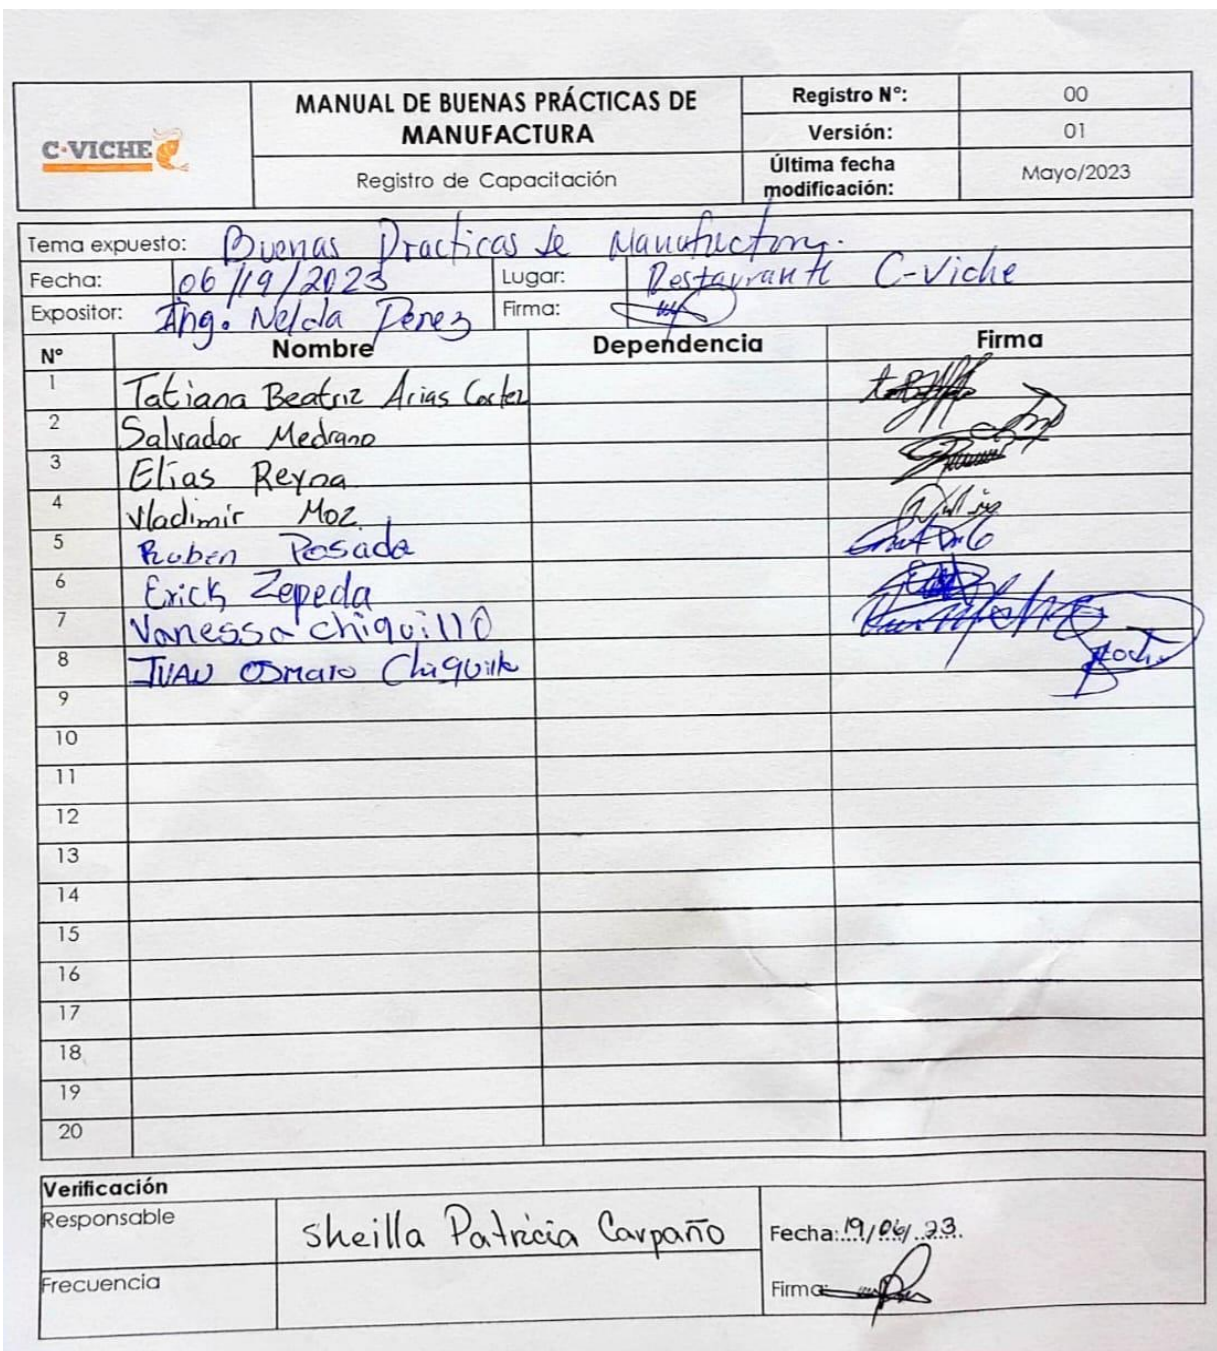 C·VICHE
MANUAL DE BUENAS PRÁCTICAS DE
MANUFACTURA
Registro de Capacitación
Registro N°: 00
Versión: 01
Última fecha
modificación: Mayo/2023
Tema expuesto: Buenas Practicas de Manufactura.
Fecha: 06/19/2023 Lugar: Restaurante C-Viche
Expositor: Ing. Nelda Perez Firma:
N° Nombre Dependencia Firma
1 Tatiana Beatriz Arias Cortez
2 Salvador Medrano
3 Elias Reyna
4 Vladimir Moz.
5 Ruben Posada
6 Erick Zepeda
7 Vanessa chiquillo
8 JUAN Chiquillo
9
10
11
12
13
14
15
16
17
18
19
20
Verificación
Responsable Sheilla Patricia Carpaño Fecha: 19/06/23.
Frecuencia Firma: